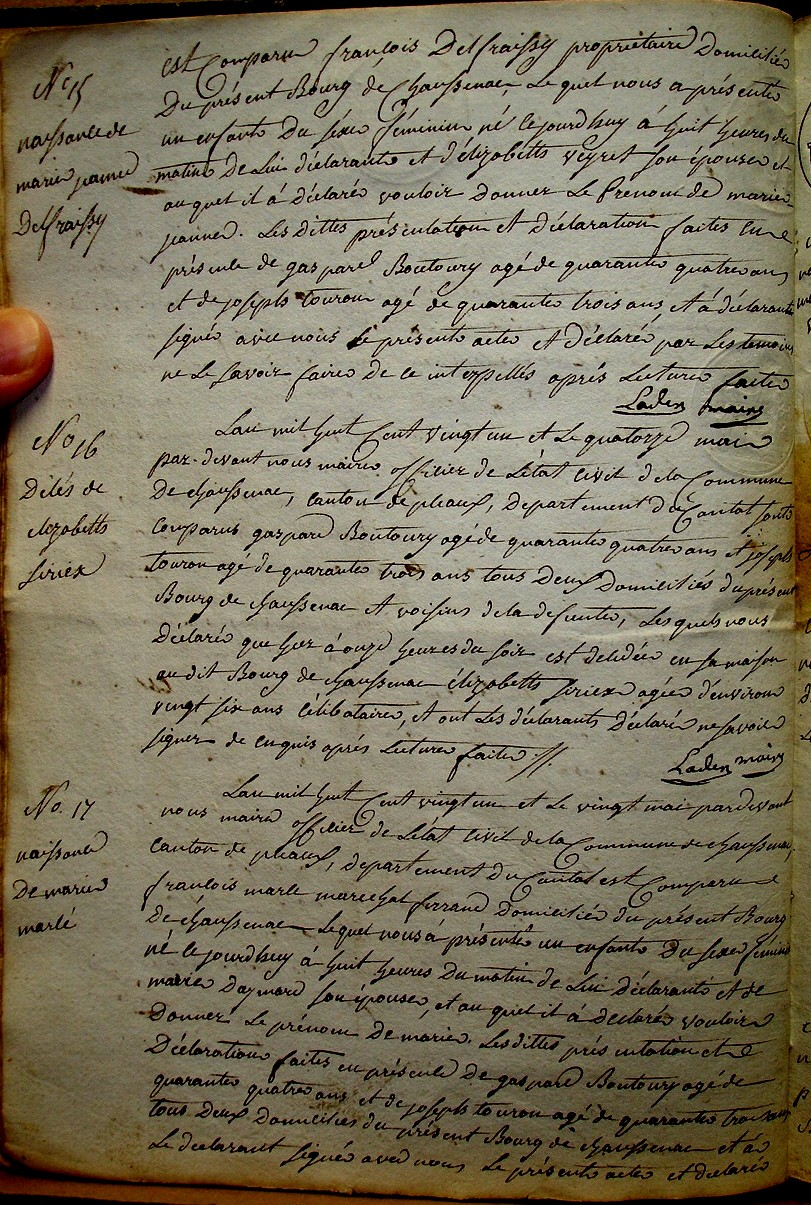 N° 15
naissance de
marie jeanne
Delfraissy
est Comparu françois Delfraissy propriétaire Domicilié
Du présent Bourg de Chaussenac Le quel nous a présenté
un enfant Du séxe féminin né Cejourdhuy à huit heures du
matin De Lui déclarant Et d'élizabetts veyret son épouse et
auquel il à déclaré vouloir Donner Le Prenom de marie
jeanne. Les dittes présentation Et Déclaration faites en
présence de gaspard Boutoury agé de quarante quatre ans
et de josepts touron agé de quarante trois ans, Et à déclarant
signé avec nous Le présent acte Et déclaré par Les temoins
ne Le savoir faire De Ce interpellés aprés Lecture faite
Laden maire
N° 16
Décés de
elizabetts
siriex
Lan mil huit Cent vingt un et Le quatorze mai
par-devant nous maire officier de Létat Civil de la Commune
De chaussenac, Canton de pleaux, departement du Cantal sont
Comparus gaspard Boutoury agé de quarante quatre ans Et josepts
touron agé de quarante trois ans tous Deux Domiciliés du présent
Bourg de chaussenac Et voisins de la defunte, Les quels nous
Déclaré que hier à onze heures du soir est décidée en sa maison
au dit Bourg de chaussenac élizabetts siriex agée d'environ
vingt six ans Célibataire, Et ont Les déclarants déclaré ne savoir
signer de Cenquis aprés Lecture faite ·//.
Laden maire
N°. 17
naissance
De marie
marlé
Lan mil huit Cent vingt un et Le vingt mai par devant
nous maire officier de Létat Civil de la Commune de chaussenac,
Canton de pleaux, departement du Cantal est Comparu
françois marle marechal ferrand Domicilié du présent Bourg
De chaussenac Le quel nous à présenté un enfant Du sexe féminin
né Ce jourdhuy à huit heures Du matin de Lui Déclarant Et de
marie Daymard son épouse, et au quel il à declaré vouloir
Donner Le prénom De marie. Les dittes présentation et
Déclaration faites en présence De gaspard Boutoury agé de
quarante quatre ans et de josepts touron agé de quarante trois ans
tous Deux Domiciliés du présent Bourg de chaussenac et à
Le declarant signé avec nous Le présent acte et déclaré